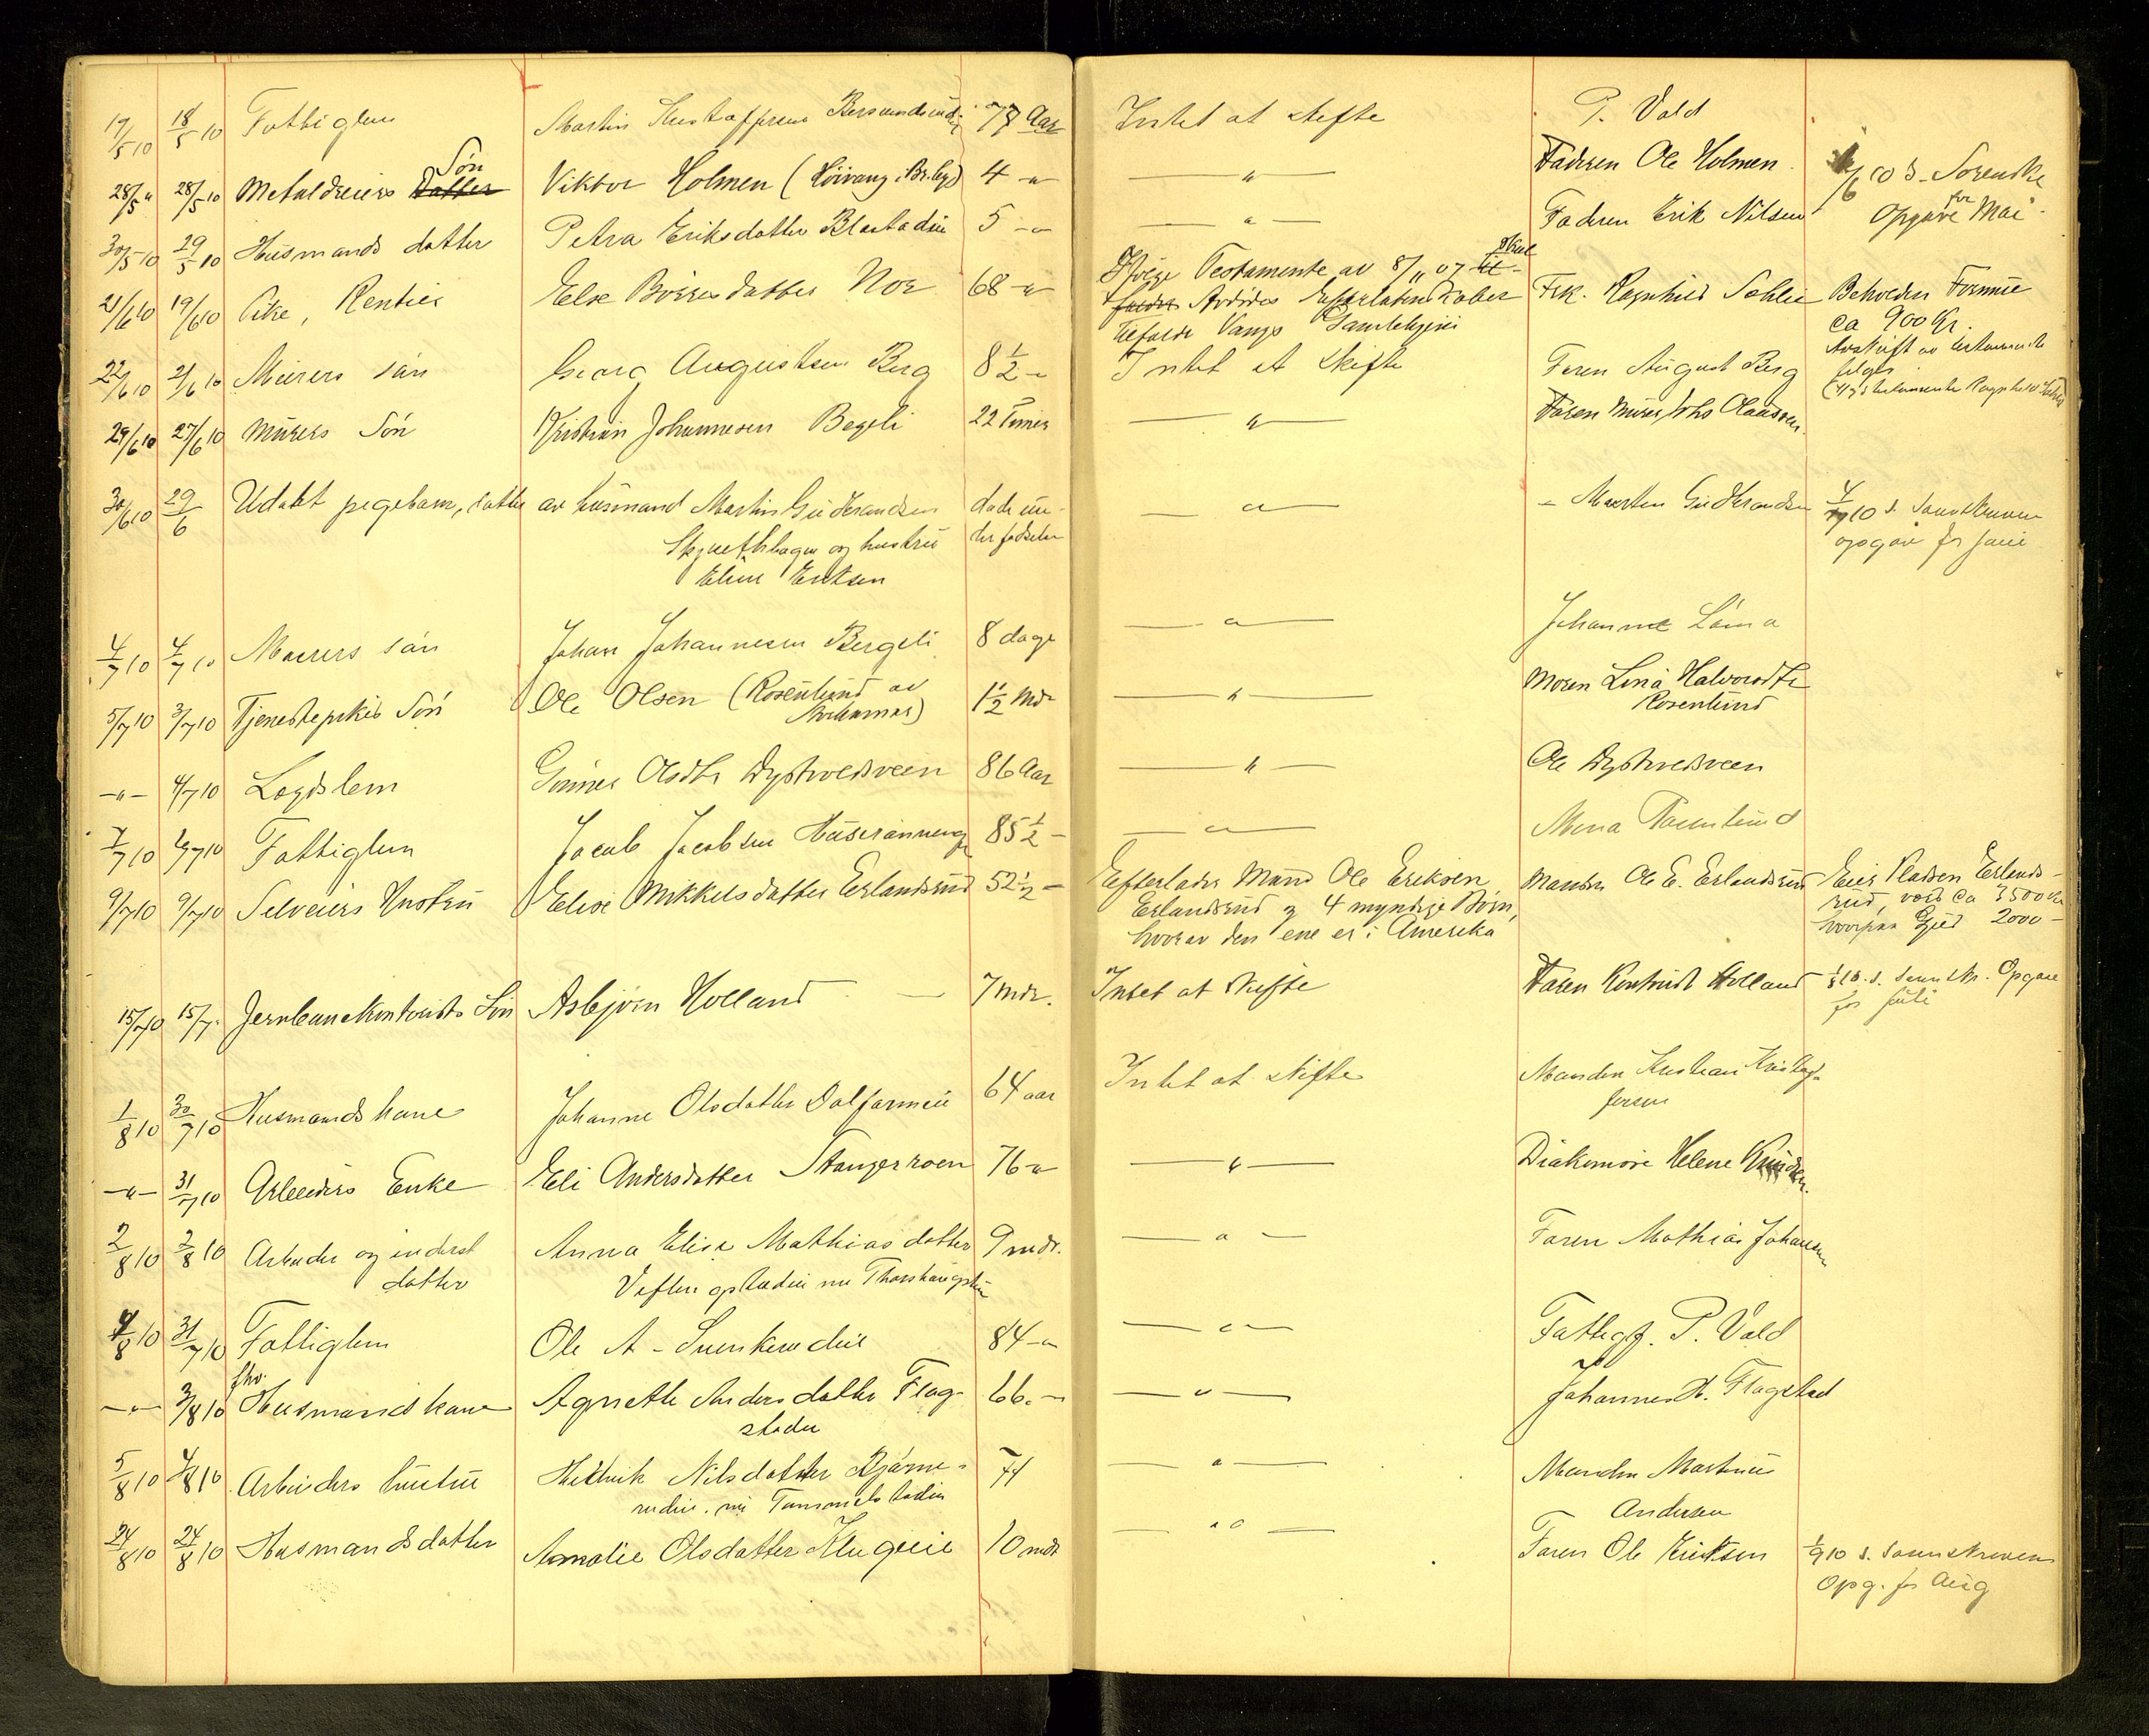 19/5 10 18/5 10 Fattiglem Martin Kristoffersen 78 Aar Intet at skifte P. Vold
28/5 " 28/5 10 Metaldreiers Datter Søn Viktor Holmen (Höivang i Br.byd) 4 - " — " — Faderen Ole Holmen. 1/6 10 s. Sorenskr
30/5 10 29/5 10 Husmands datter Petra Eriksdatter 5 - " — " — Faderen Erik Nilsen Opgave for Mai
21/6 10 19/6 10 Pike, Rentier Else Börresdatter Nor 68 - " Ifølge Testamente av 8/11 07 skal
Avdödes Efterladenskaber Frk. Ragnhild Sehlie Beholden Formue
tilfalde Vangs Gamlehjem ca 900 Kr.
Avskrift av testamente
følger
22/6 10 21/6 10 Murers søn Georg Augustsen Berg 8 1/2 - " Intet at skifte Faren August Berg
29/6 10 27/6 10 Murers Søn Kristian Johannesen Bergli 22 Timer — " — Faren Murer Johs Olaussen
30/6 10 29/6 Udøbt pigebarn, datter av husmand Martin Gudbrandsen døde un- — " — - Martin Gudbrandsen 4/7 10 s. Sorenskriveren
og hustru der fødselen opgave for Juni
Eline Eriksen
4/7 10 4/7 10 Murers søn Johan Johannesen Bergli 8 dage — " — Johanne Lima
5/7 10 3/7 10 Tjenestepikes Søn Ole Olsen (Rosenlund av 1 1/2 Mdr — " — Moren Lina Halvorsdtr
Rosenlund
— " — 4/7 10 Lægdslem Olsdtr Dystvedsveen 86 Aar — " — Ole Dystvedsveen
7/7 10 6/7 10 Fattiglem Jacob Jacobsen 85 1/2 - — " — Mina Rosenlund
9/7 10 9/7 10 Selveiers Hustru Elise Mikkelsdatter Erlandsrud 52 1/2 - Efterlader Mand Ole Eriksen Manden Ole E. Erlandsrud Eier Pladsen Erlands-
Erlandsrud og 4 myndige Börn, rud, værd ca 3500 Kr
hvorav den ene er i Amerika hvorpaa Gjæld 2000 -
15/7 10 15/7 Jernbanekontorists Sön Asbjörn Holland — 7 mdr. Intet at skifte Faren Kontorist Holland 1/8 10. s. Sorenskr. Opgave
for Juli
1/8 10 30/7 10 Husmandskone Johanne Olsdatter Dalfarmen 64 aar Intet at skifte Manden Kristian Kristof-
fersen
— " — 31/7 10 Arbeiders Enke Eli Andersdatter Stangerroen 76 - " — " — Diakonisse Helene
2/8 10 2/8 10 Arbeider og inderst Anna Elise Mathiasdatter 9 mdr. — " — Faren Mathias Johansen
datter
4/8 10 31/7 10 Fattiglem Ole A - 84 - " — " — Fattigf. P. Vold
— " — 3/8 10 fhv. Husmandskone Agnethe Andersdatter Flag- 66. - — " — Johannes H. Flagstad
staden
5/8 10 4/8 10 Arbeiders hustru Nilsdatter Bjørne- 74 — " — Manden Martinus
rudeie. nu Andersen
24/8 10 24/8 10 Husmandsdatter Amalie Olsdatter Klugeie 10 mdr — " — Faren Ole Eriksen 1/9 10 s. Sorenskriveren
Opg. for Aug